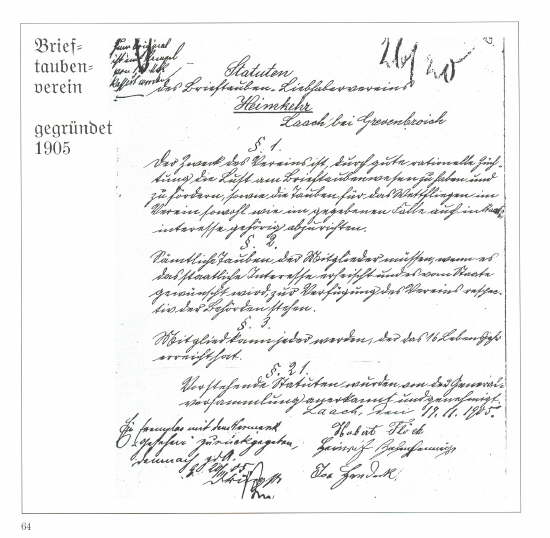 Brief-
tauben-
verein
gegründet
1905
zum Original
ist ein Stempel
von
26/20
Statuten
des Brieftauben-Liebhabervereins
Heimkehr
Laach bei Grevenbroich
§. 1.
Der Zweck des Vereins ist, durch gute rationelle Züch-
tung die Lust am Brieftaubenwesen zu heben und
zu fördern, sowie die Tauben für das Wettfliegen im
Verein sowohl wie im gegebenen Falle auch im Staats-
interesse gehörig abzurichten.
§. 2.
Sämtliche Tauben der Mitglieder müssen, wenn es
das staatliche Interesse erheischt und es vom Staate
gewünscht wird, zur Verfügung des Vereins respek-
tiv der Behörden stehen.
§. 3.
Mitglied kann jeder werden, der das 16 Lebensjahr
erreicht hat.
§. 21.
Vorstehende Statuten wurden von der General-
versammlung anerkannt und genehmigt.
Laach, den 19. 11. 1905.
Exemplar mit dem Vermerk
"Gesehen" zurückgegeben,
demnach z. d. A.
Hubert Flöck
Heinrich
64